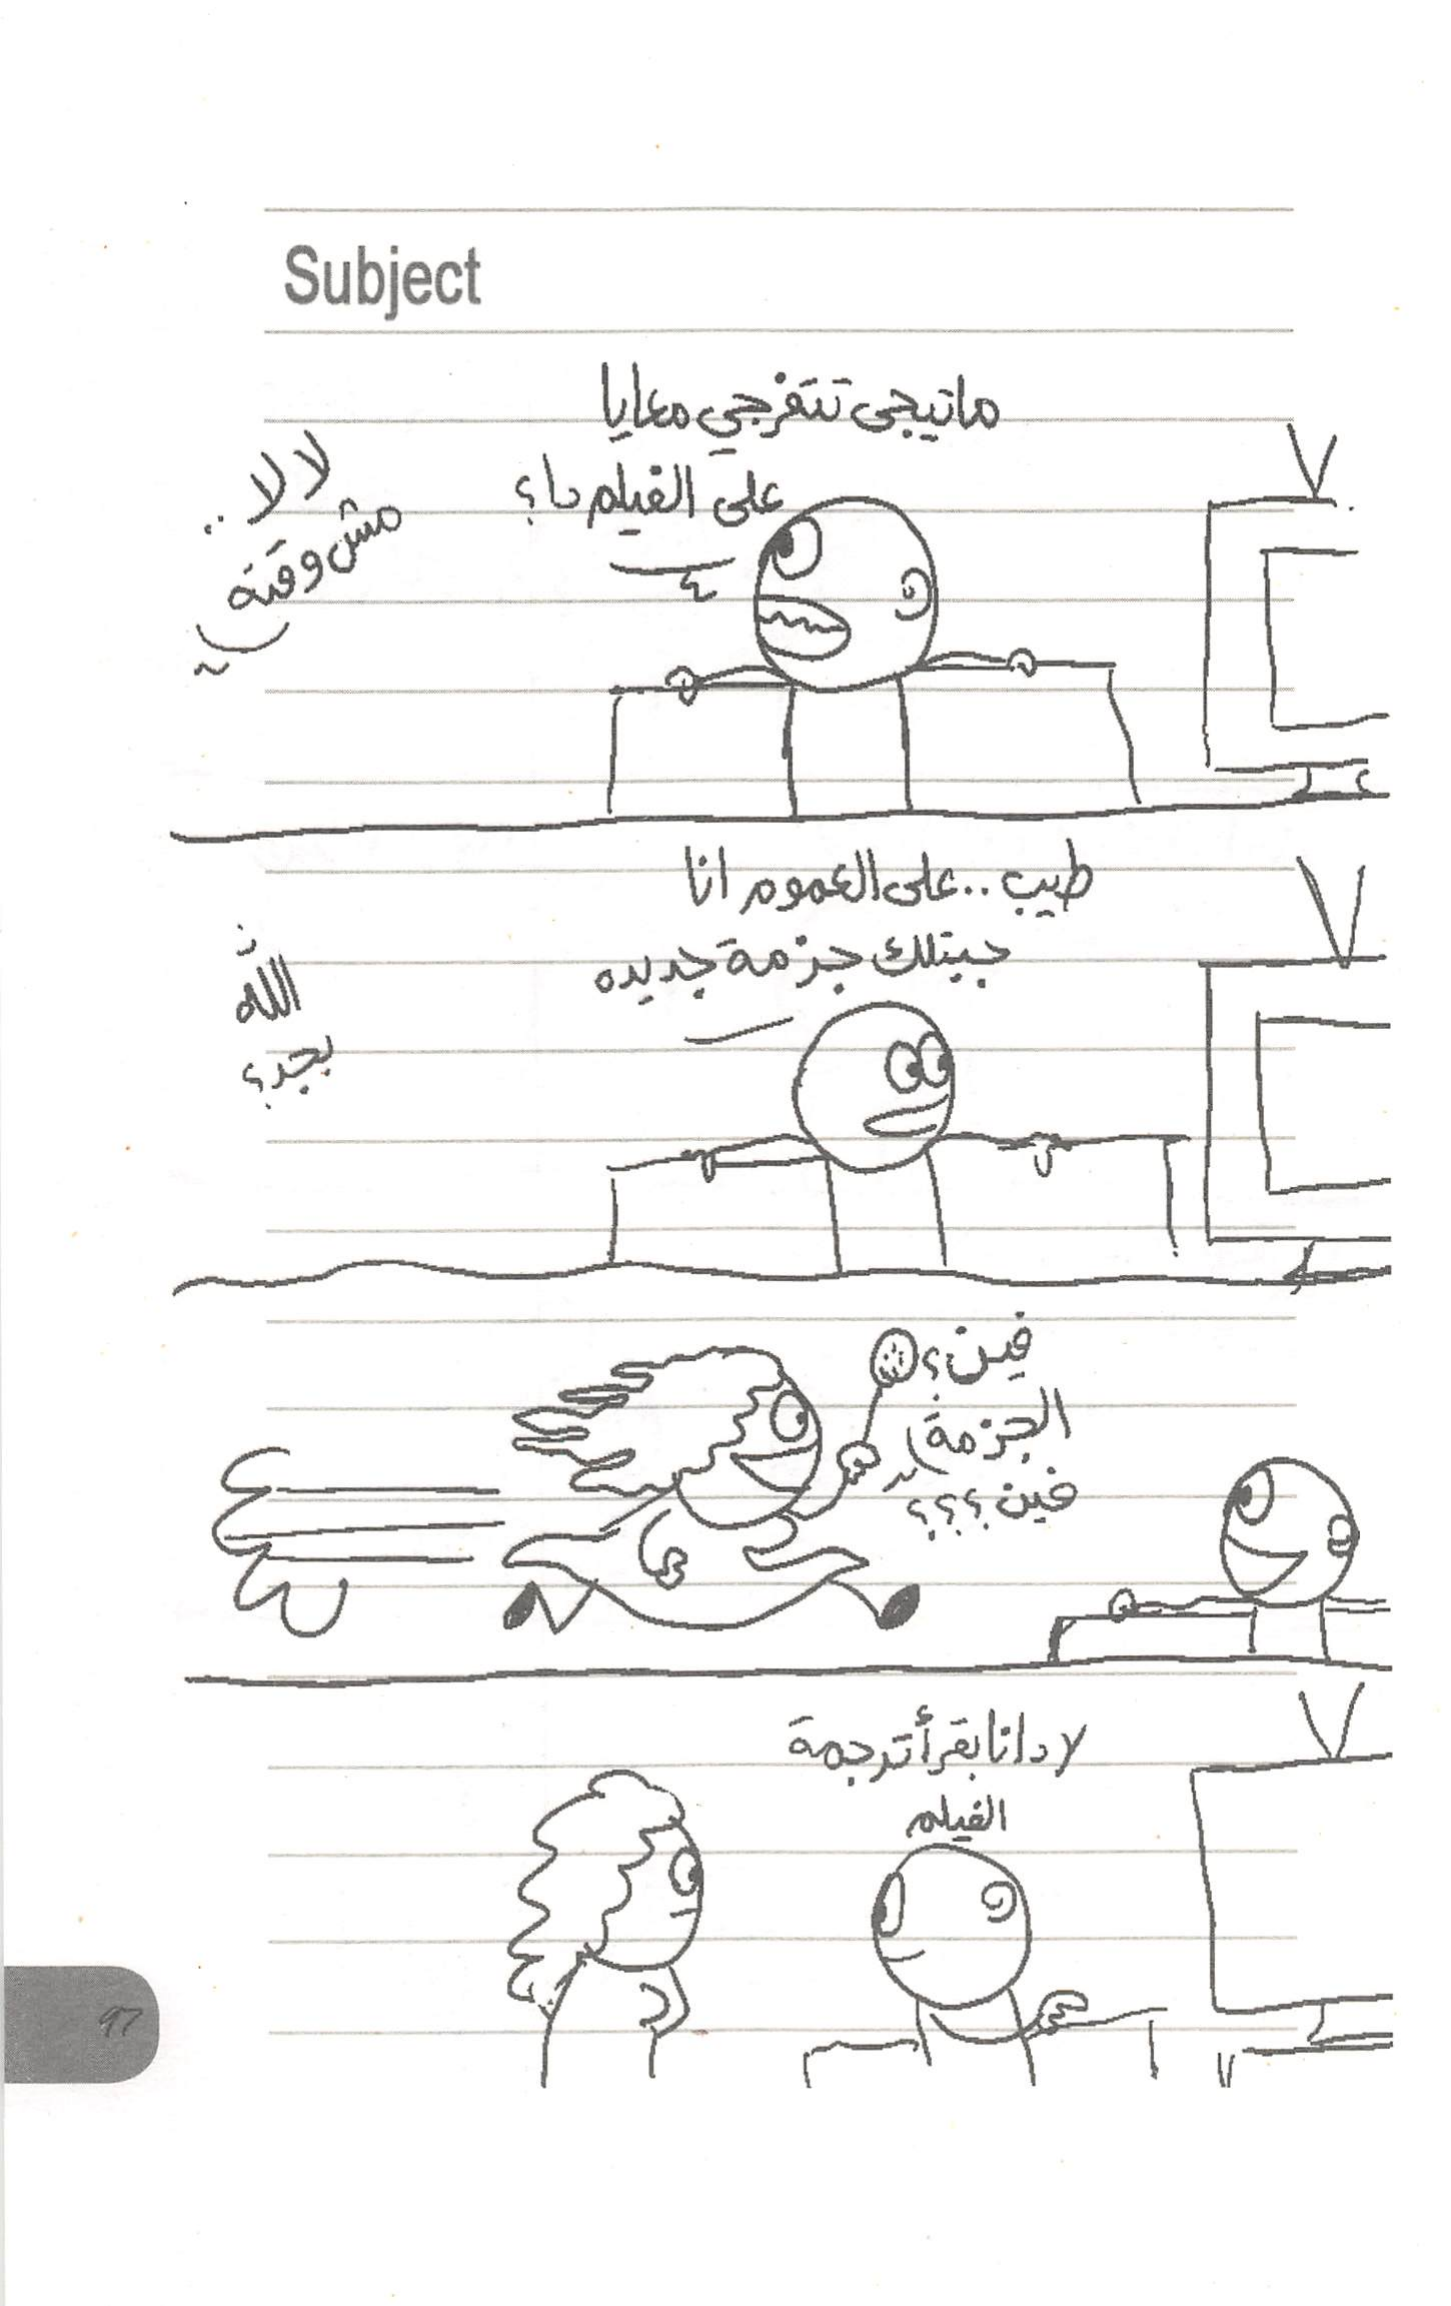 Subject
ماتيجى تتفرجي معايا
على الفيلم دا؟
لا لا ..
مش وقته
طيب .. على العموم انا
جبتلك جزمة جديده
الله
بجد؟
فين؟
الجزمة
فين؟؟؟
لا دا انا بقرأ ترجمة
الفيلم
97